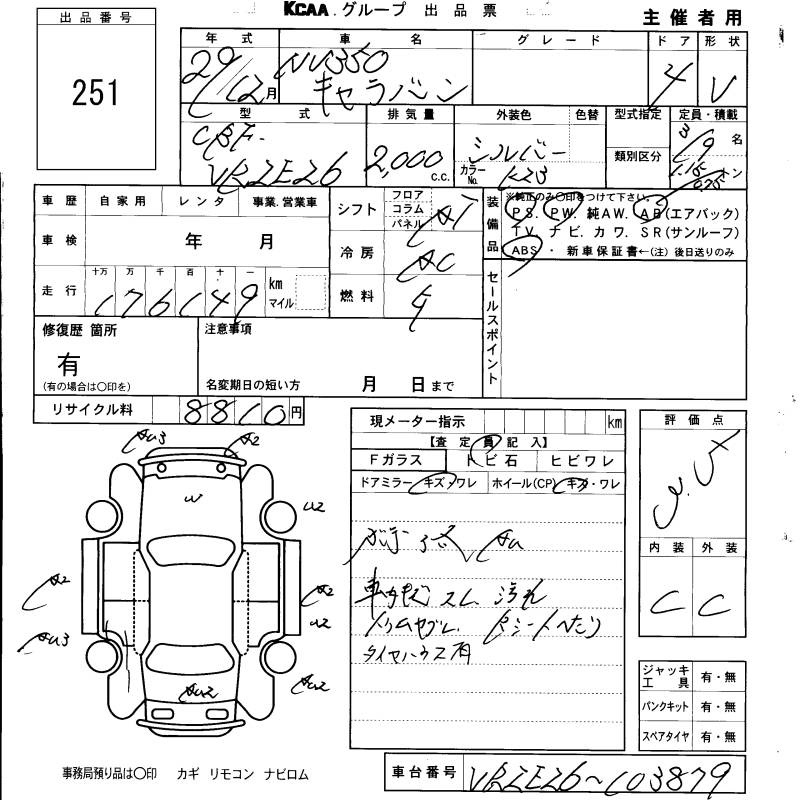 KCAA グループ 出品票
主催者用
出品番号
251
年式 車名 グレード ドア 形状
29/12月 NV350 キャラバン 4 V
型式 排気量 外装色 色替 型式指定 定員・積載
類別区分
CBF- VR2E26 2,000 c.c. シルバー カラーNo. K23 3/9名 1.15/0.75トン
車歴 自家用 レンタ 事業.営業車
シフト フロア コラム パネル AT
装備品 ※純正のみ〇印をつけて下さい。
PS. PW. 純AW. AB(エアバック)
TV. ナビ. カワ. SR(サンルーフ)
ABS ・ 新車保証書←(注)後日送りのみ
車検 年 月
冷房 AC
走行 十万 万 千 百 十 一 km マイル
176149
燃料
セールスポイント
修復歴 箇所
有
(有の場合は〇印を)
注意事項
名変期日の短い方 月 日まで
リサイクル料 8810円
現メーター指示 km
【査定員記入】
Fガラス トビ石 ヒビワレ
ドアミラー キズ・ワレ ホイール(CP) キズ・ワレ
評価点
内装 外装
C C
AU3 A2
W
U2
A2 A2
U2
AU3
AU2 AU2
車内キズ スレ 汚れ
トリムヤブレ Rシートヘたり
タイヤハウス有
ジャッキ 工具 有・無
パンクキット 有・無
スペアタイヤ 有・無
事務局預り品は〇印 カギ リモコン ナビロム
車台番号 VR2E26~103879